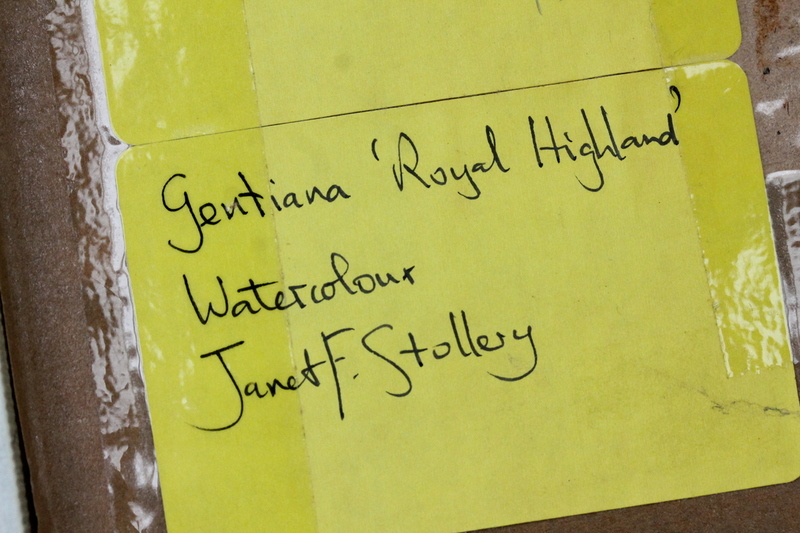 Gentiana 'Royal Highland'
Watercolour
Janet F. Stollery